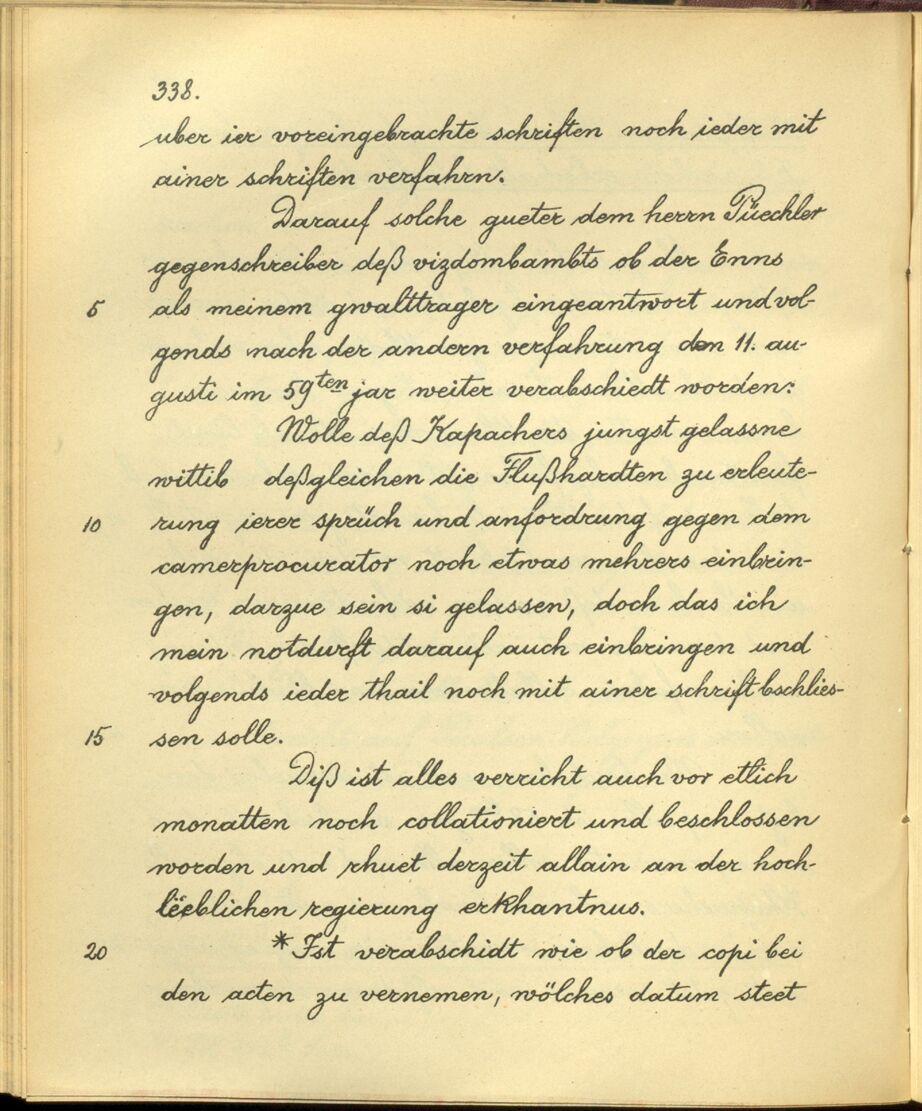 338.
uber ier voreingebrachte schriften noch ieder mit
ainer schriften verfahrn.
Darauf solche gueter dem herrn Püechler
gegenschreiber deß vizdombambts ob der Enns
5 als meinem gwalttrager eingeantwort und vol-
gends nach der andern verfahrung den 11. au-
gusti im 59ten jar weiter verabschiedt worden:
Wolle deß Kapachers jungst gelassne
wittib deßgleichen die Flußhardten zu erleute-
10 rung ierer sprüch und anfordrung gegen dem
camerprocurator noch etwas mehrers einbrin-
gen, darzue sein si gelassen, doch das ich
mein notdurft darauf auch einbringen und
volgends ieder thail noch mit ainer schrift bschlies-
15 sen solle.
Diß ist alles verricht auch vor etlich
monatten noch collationiert und beschlossen
worden und rhuet derzeit allain an der hoch-
löblichen regierung erkhantnus.
20 * Ist verabschidt wie ob der copi bei
den acten zu vernemen, wölches datum steet